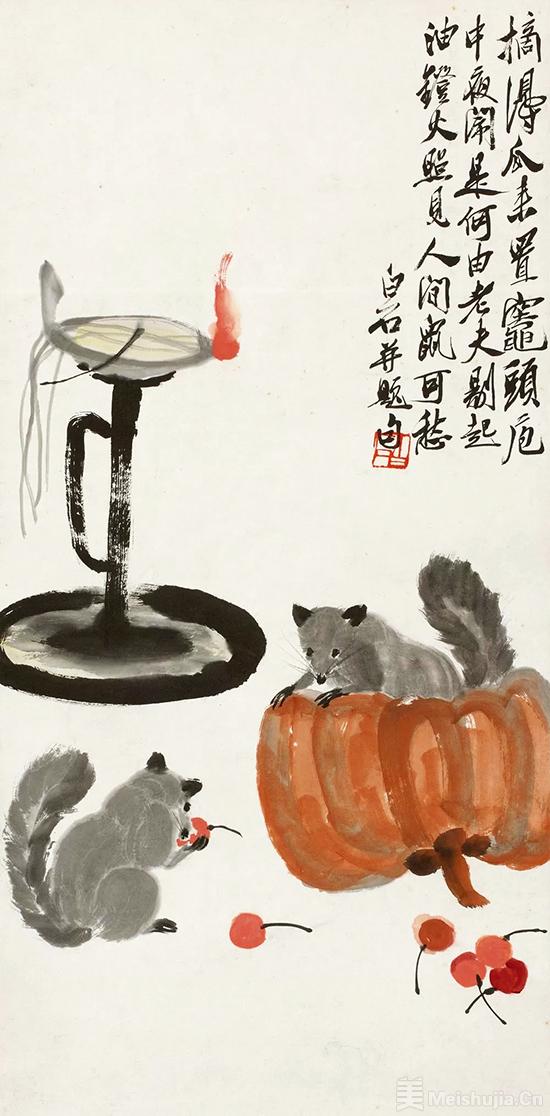 摘得瓜来置竈頭庖
中夜閙是何由老夫剔起
油鐙火照見人间鼠可愁
白石并題句
美 Meishujia.Cn